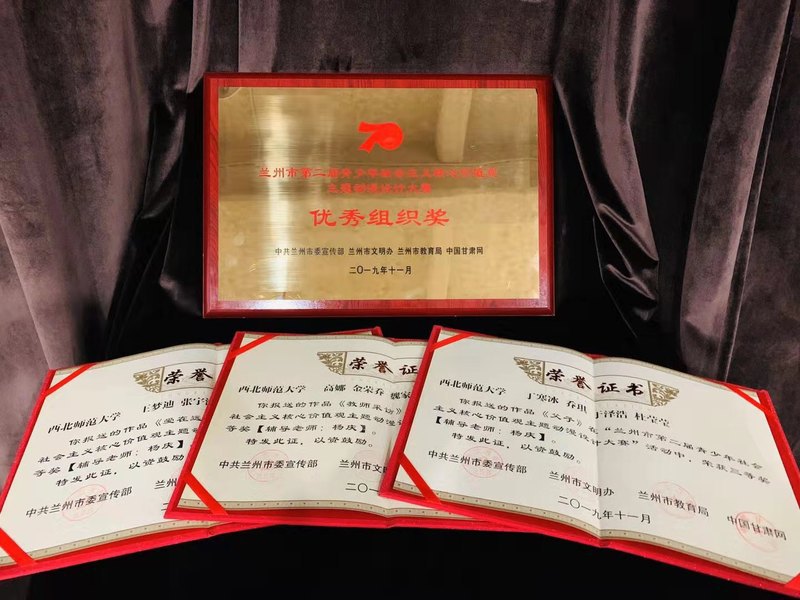 70
兰州市第二届青少年社会主义核心价值观
主题动漫设计大赛
优秀组织奖
中共兰州市委宣传部 兰州市文明办 兰州市教育局 中国甘肃网
二〇一九年十一月
荣誉
西北师范大学 王梦迪 张宇
你报送的作品《爱在
社会主义核心价值观主题
等奖【辅导老师：杨庆】
特发此证，以资鼓励
中共兰州市委宣传部 兰州
荣誉证
西北师范大学 高娜 金荣春 魏家
你报送的作品《教师采访》
社会主义核心价值观主题动漫设
等奖【辅导老师：杨庆】。
特发此证，以资鼓励。
中共兰州市委宣传部 兰州市文
二〇一
荣誉证书
西北师范大学 丁寒冰 乔琪 于泽浩 杜莹莹
你报送的作品《父子》在“兰州市第二届青少年社会
主义核心价值观主题动漫设计大赛”活动中，荣获三等奖
【辅导老师：杨庆】。
特发此证，以资鼓励。
中共兰州市委宣传部 兰州市文明办 兰州市教育局 中国甘肃网
二〇一九年十一月